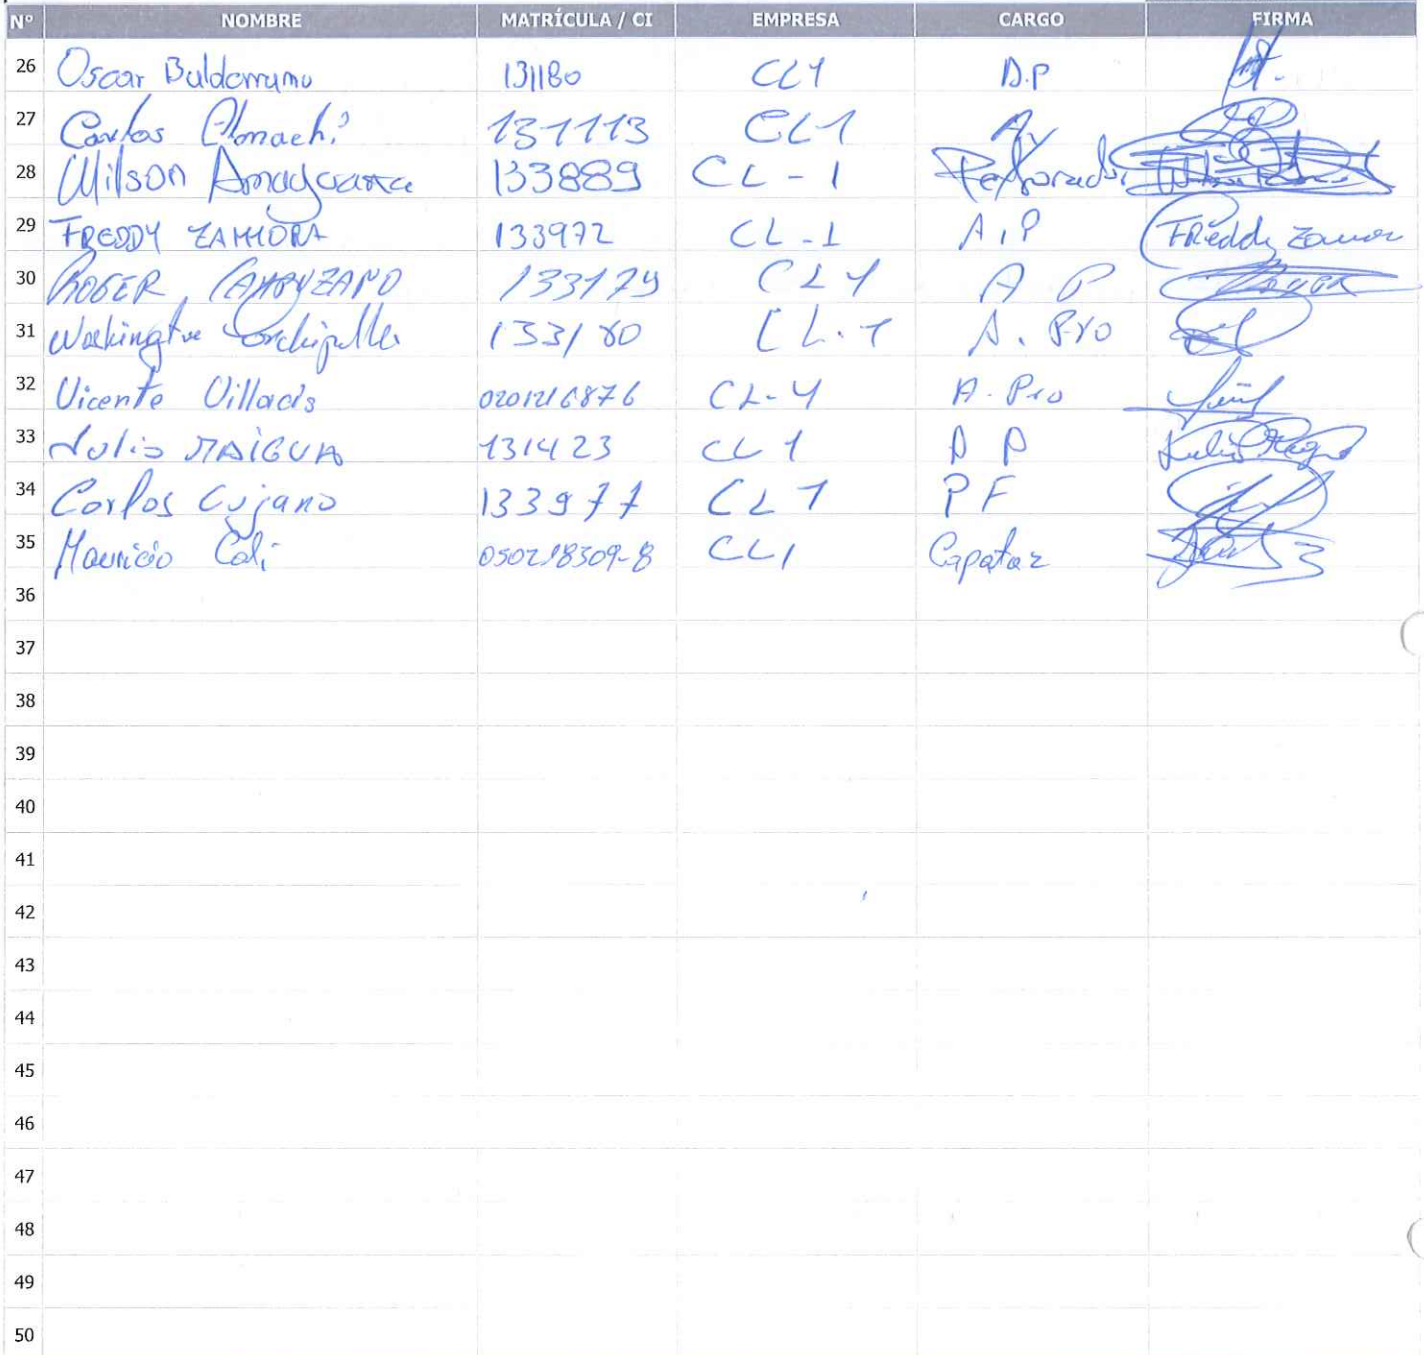 Nº NOMBRE MATRÍCULA / CI EMPRESA CARGO FIRMA
26 Oscar Balderramo 131180 CL1 A.P
27 Carlos 131113 CL1 Ay
28 Wilson 133889 CL-1 Perforador
29 FREDDY ZAMORA 133972 CL-1 A.P Freddy Zamor
30 ROGER CAMPUZANO 133179 CL1 A P
31 133180 CL.1 A. Pro
32 Vicente Villacis 0201216876 CL-1 A. Pro
33 Julio MAIGUA 131423 CL1 A P
34 Carlos Cujano 133977 CL1 PF
35 Mauricio Cali 050218309-8 CL1 Capataz
36
37
38
39
40
41
42
43
44
45
46
47
48
49
50